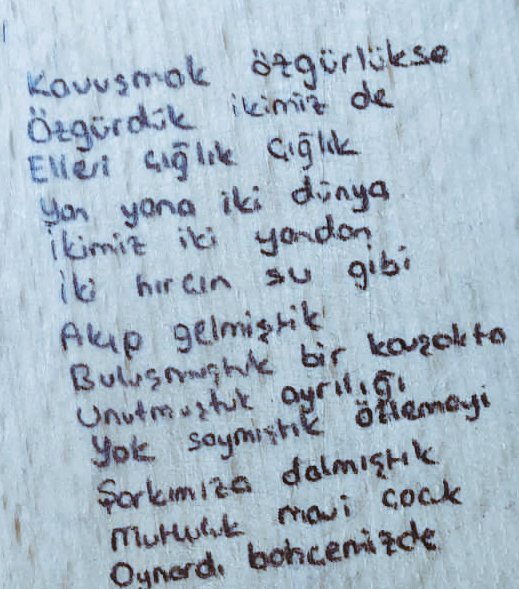 Kavuşmak özgürlükse
Özgürdük ikimiz de
Elleri çığlık çığlık
Yan yana iki dünya
İkimiz iki yandan
İki hırçın su gibi
Akıp gelmiştik
Buluşmuştuk bir kavşakta
Unutmuştuk ayrılığı
Yok saymıştık özlemeyi
Şarkımıza dalmıştık
Mutluluk mavi çocuk
Oynardı bahçemizde